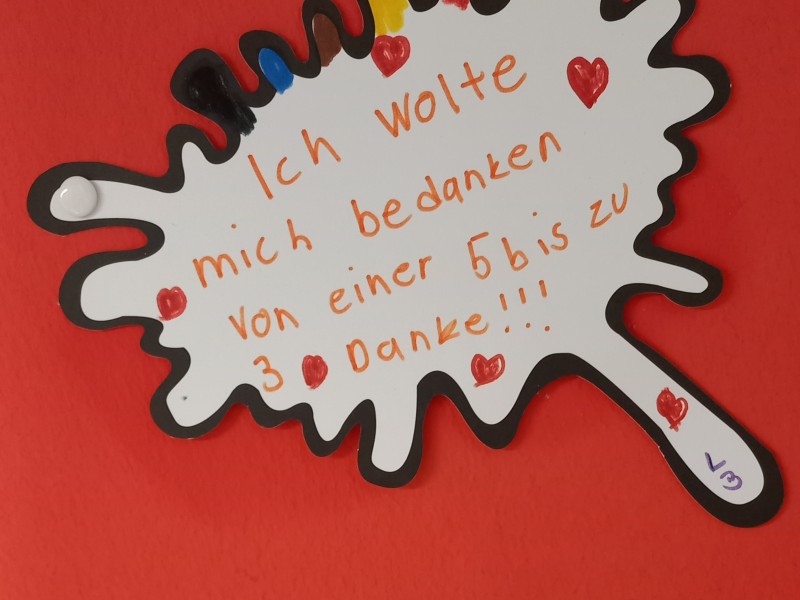 Ich wolte
mich bedanken
von einer 5 bis zu
3 Danke!!!
<3